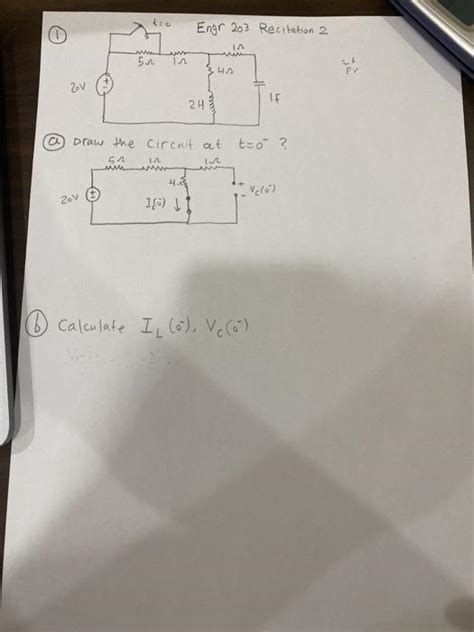 ① t=0 Engr 203 Recitation 2
5Ω 1Ω 1Ω
4Ω
20V
2H 1f
ⓐ Draw the circuit at t=0⁻ ?
5Ω 1Ω 1Ω
4Ω + Vc(0⁻)
20V I_L(0⁻) ↓ -
ⓑ Calculate I_L (0⁻), Vc(0⁻)